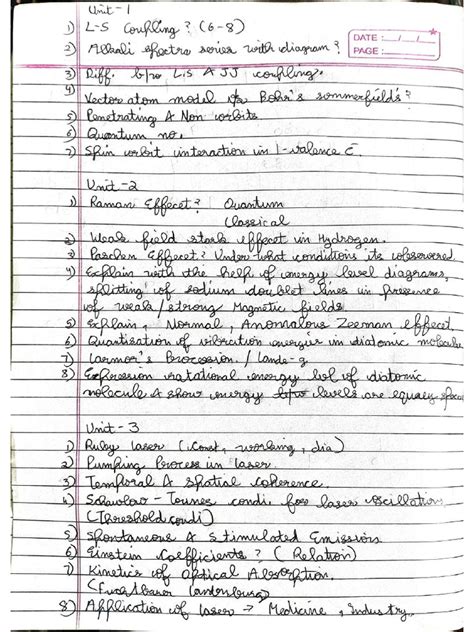 Unit-1
1) L-S Coupling? (6-8)
DATE: / /
2) Alkali spectra series with diagram?
PAGE:
3) Diff. b/w L.S & JJ coupling.
4)
Vector atom model & Bohr's sommerfield's?
5) Penetrating & Non orbits
6) Quantum no.
7) Spin orbit interaction in 1-valence E.
Unit-2
1) Raman Effecet? Quantum
Classical
2) Weak field stark effect in Hydrogen.
3) Paschen Effecet? Under what conditions its observered
4) Explain with the help of energy level diagrams,
splitting of sodium doublet lines in presence
of weak/strong Magnetic fields.
5) Explain, Normal, Anomalous Zeeman effecet.
6) Quantisation of vibration energies in diatomic molecule
7) Larmor's Precession. / Lande-g
8) Expression rotational energy lvl of diatomic
molecule & show energy levels are equaly
Unit-3
1) Ruby laser (const, working, dia)
2) Pumping Process in laser.
3) Temporal & spatial coherence.
4) Schawlow-Townes condi. for laser oscillation
(Threshold condi)
5) Spontaneous & Stimulated Emission
6) Einstein Coefficients? (Relation)
7) Kinetics of Optical Absorption.
8) Application of laser → Medicine, Industry.